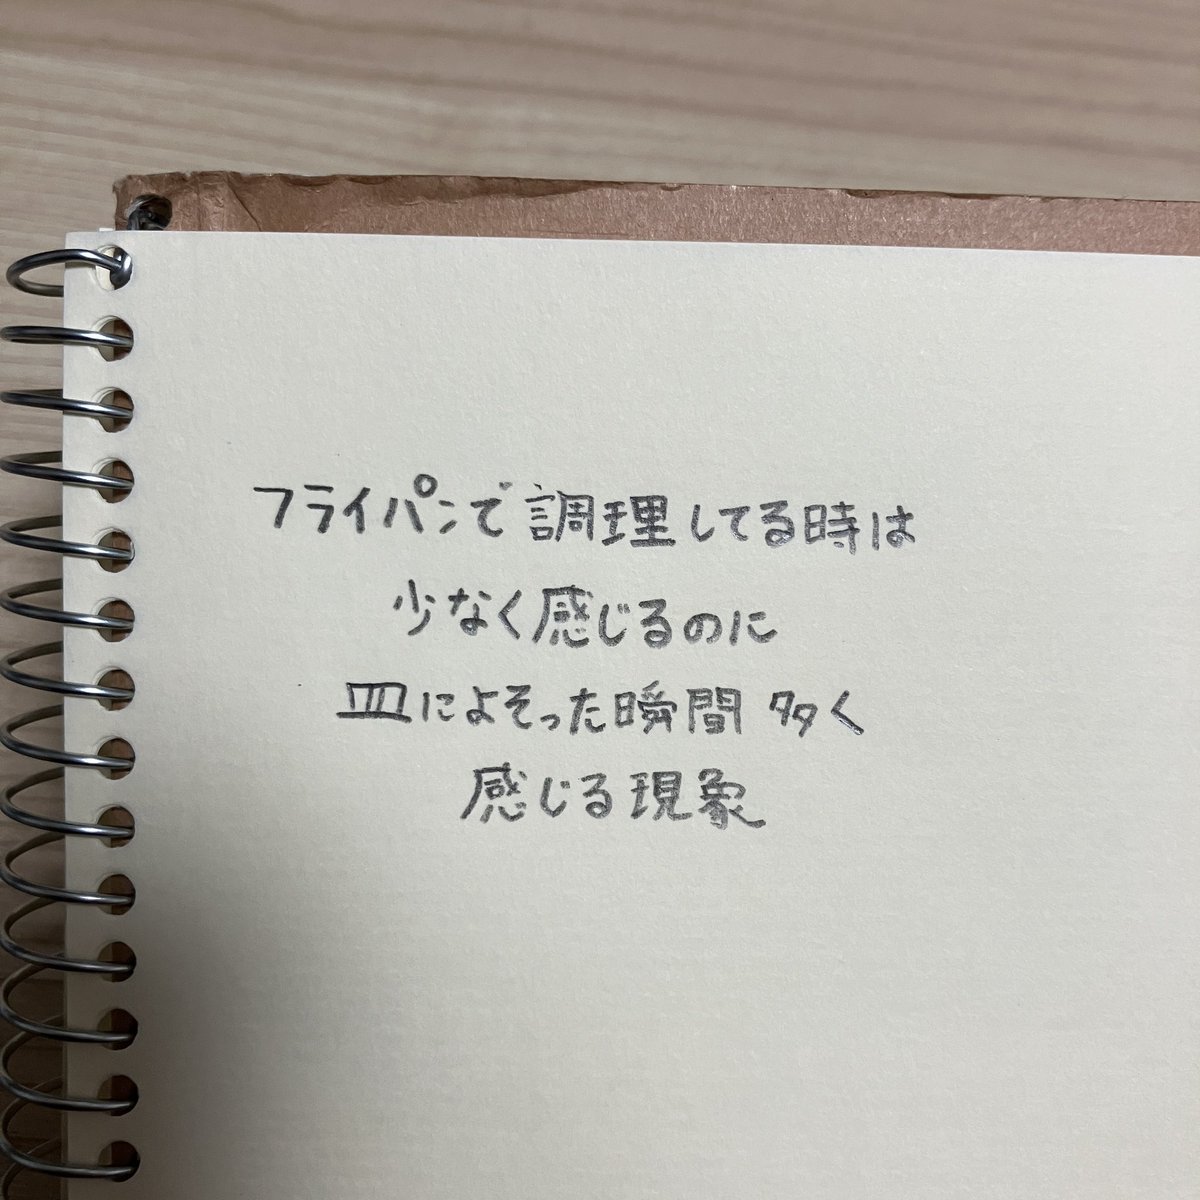 フライパンで調理してる時は
少なく感じるのに
皿によそった瞬間多く
感じる現象